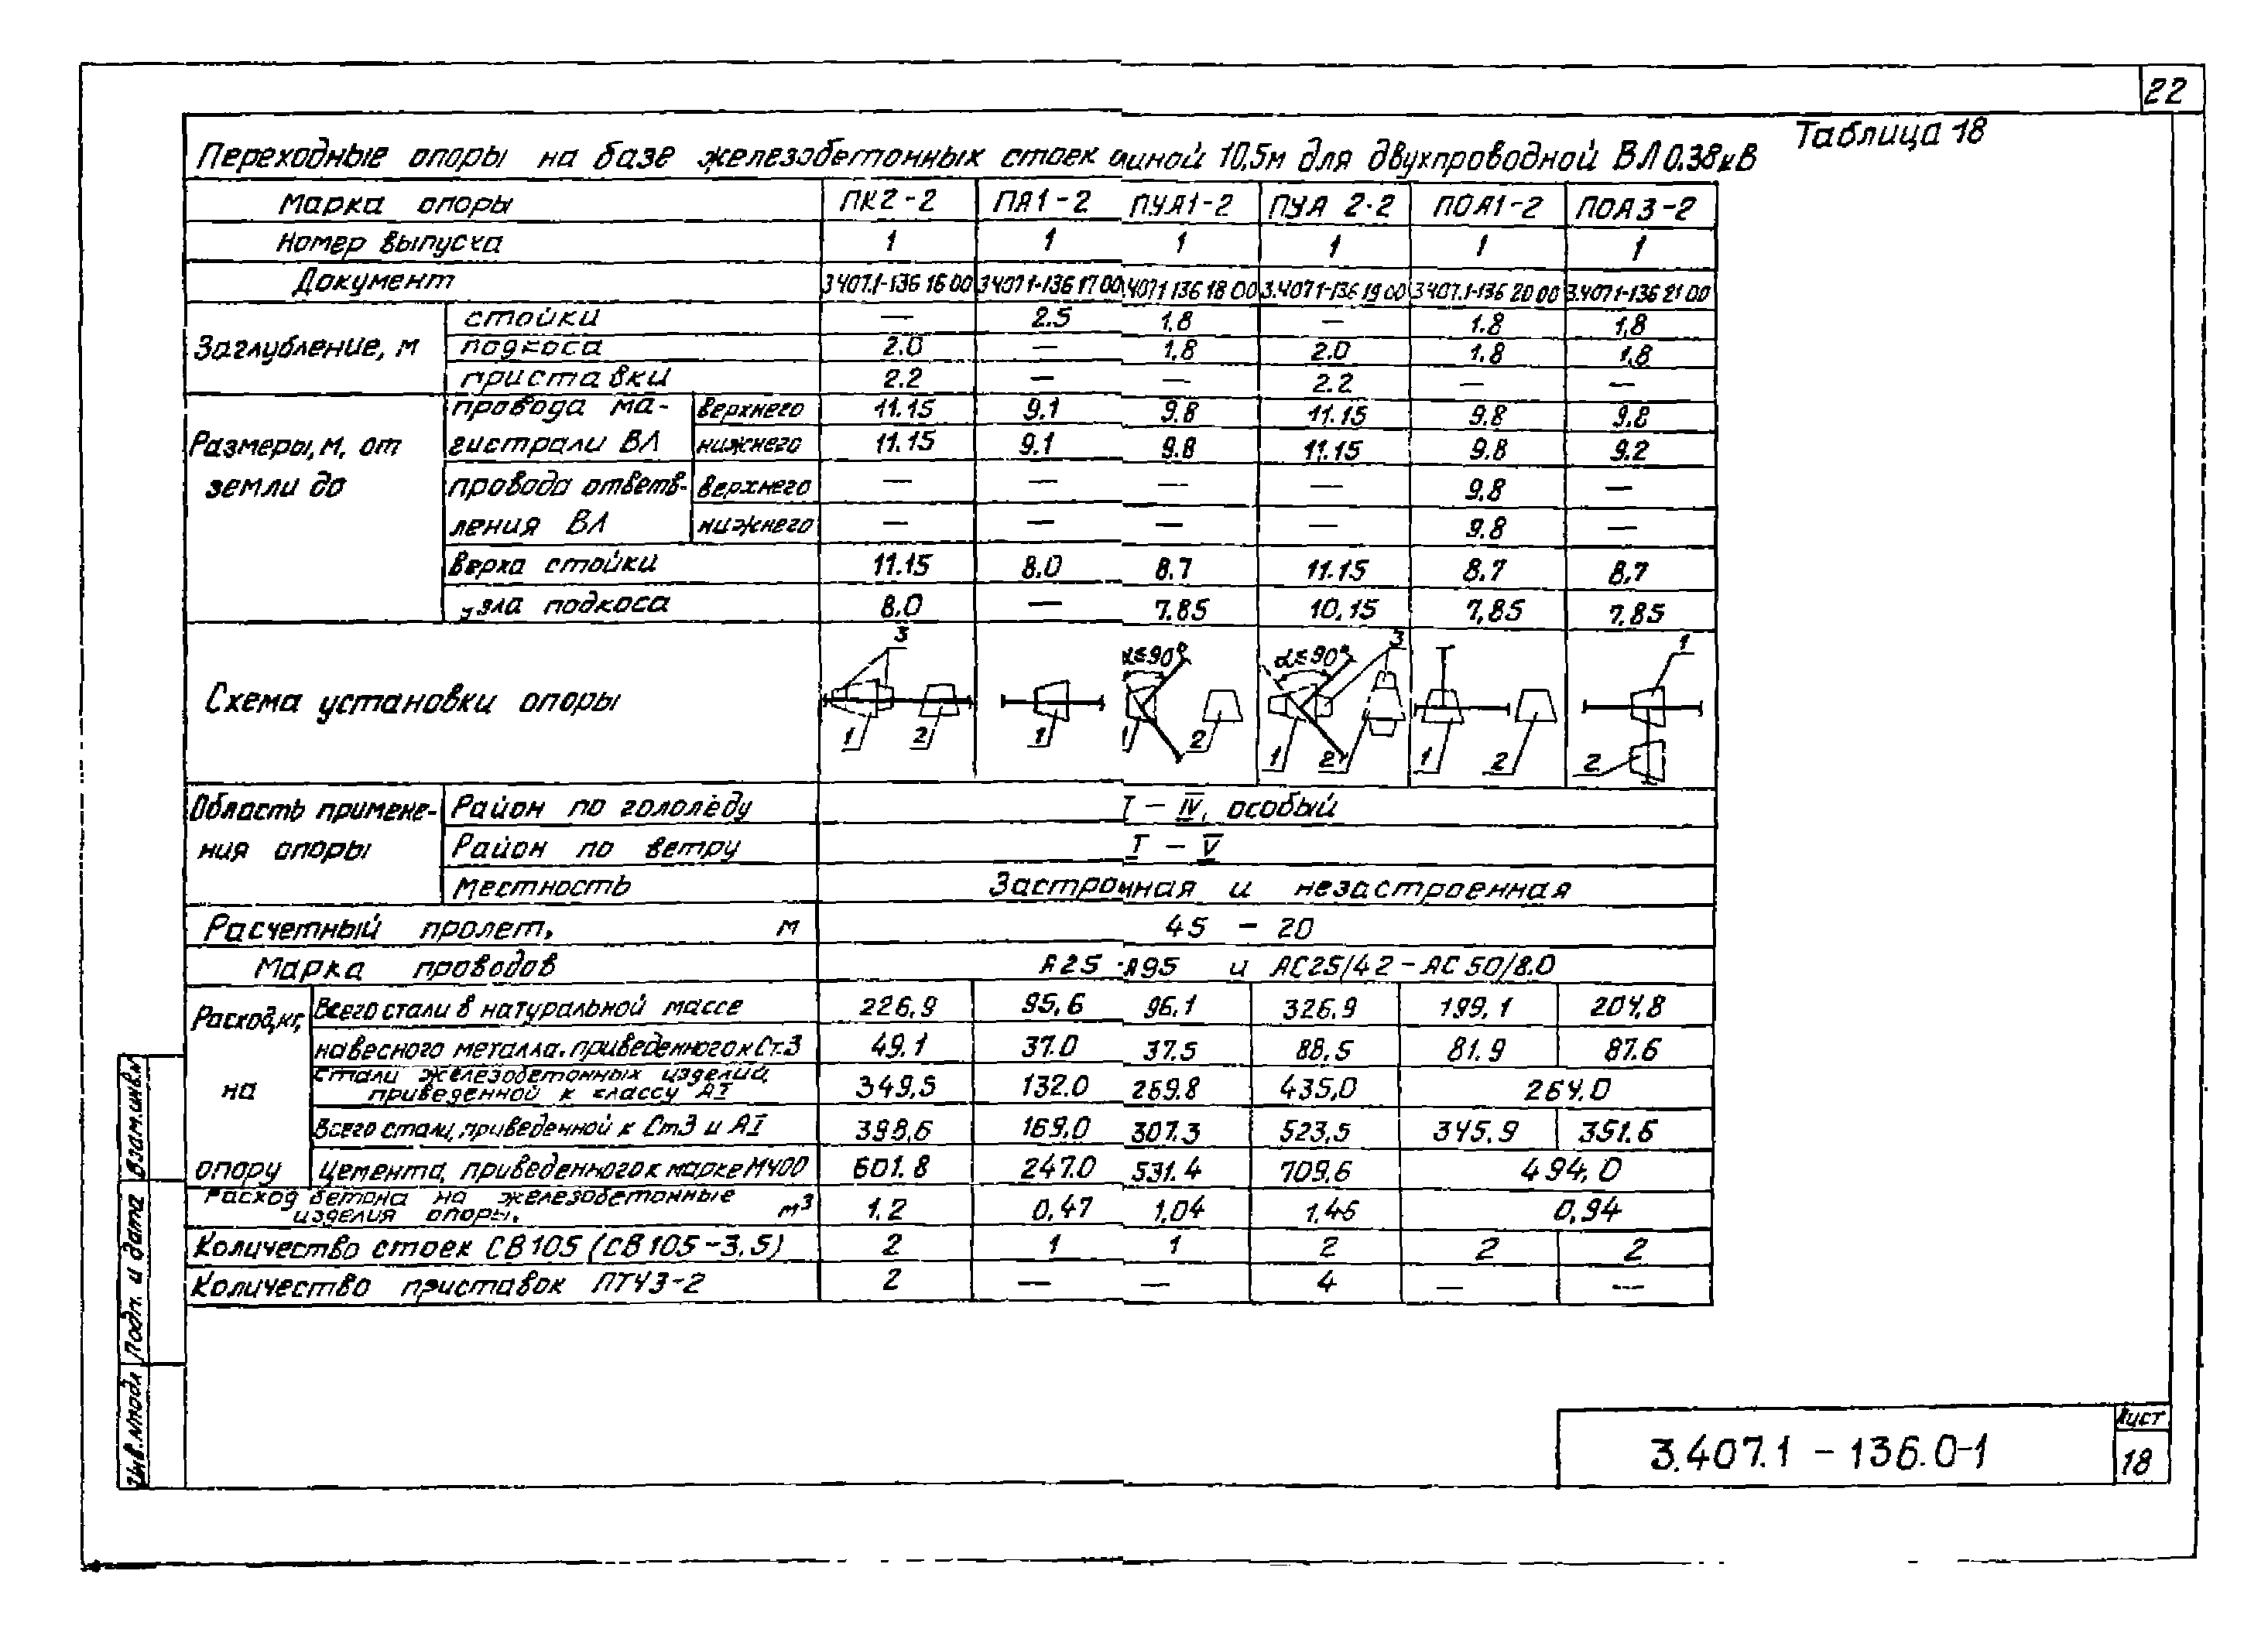 22
Таблица 18
Переходные опоры на базе железобетонных стоек линой 10,5м для двухпроводной ВЛ 0.38кВ
Марка опоры ПК2-2 ПА1-2 ПУА1-2 ПУА 2-2 ПОА1-2 ПОА3-2
Номер выпуска 1 1 1 1 1 1
Документ 3.407.1-136 16 00 3.407.1-136 17 00 3.407.1 136 18 00 3.407.1-136 19 00 3.407.1-136 20 00 3.407.1-136 21 00
Заглубление, м
стойки — 2.5 1,8 — 1.8 1,8
подкоса 2.0 — 1,8 2.0 1.8 1,8
приставки 2.2 — — 2.2 — —
Размеры, м, от земли до
провода магистрали ВЛ
верхнего 11.15 9.1 9.8 11.15 9.8 9.8
нижнего 11.15 9.1 9.8 11.15 9.8 9.2
провода ответвления ВЛ
верхнего — — — — 9.8 —
нижнего — — — — 9.8 —
верха стойки 11.15 8.0 8.7 11.15 8.7 8,7
узла подкоса 8.0 — 7.85 10.15 7,85 7,85
Схема установки опоры
3 1 2
1
α≤90° 1 2
α≤90° 3 1 2
1 2
1 2
Область применения опоры
Район по гололёду I – IV, особый
Район по ветру I – V
Местность Застроенная и незастроенная
Расчетный пролет, м 45 – 20
Марка проводов А25-А95 и АС25/4.2-АС 50/8.0
Расход, кг, на опору
Всего стали в натуральной массе 226,9 95,6 96,1 326,9 199,1 204,8
навесного металла, приведенного к Ст.3 49.1 37.0 37.5 88,5 81.9 87.6
Стали железобетонных изделий, приведенной к классу АI 349,5 132.0 269.8 435,0 264,0
Всего стали, приведенной к Ст3 и АI 398,6 169,0 307.3 523,5 345,9 351.6
Цемента, приведенного к марке М400 601.8 247.0 531.4 709,6 494,0
Расход бетона на железобетонные изделия опоры, м³ 1.2 0,47 1,04 1,46 0,94
Количество стоек СВ105 (СВ105-3.5) 2 1 1 2 2 2
Количество приставок ПТ43-2 2 — — 4 — —
Инв.№подл Подп. и дата Взам.инв.№
3.407.1 – 136.0-1
Лист
18